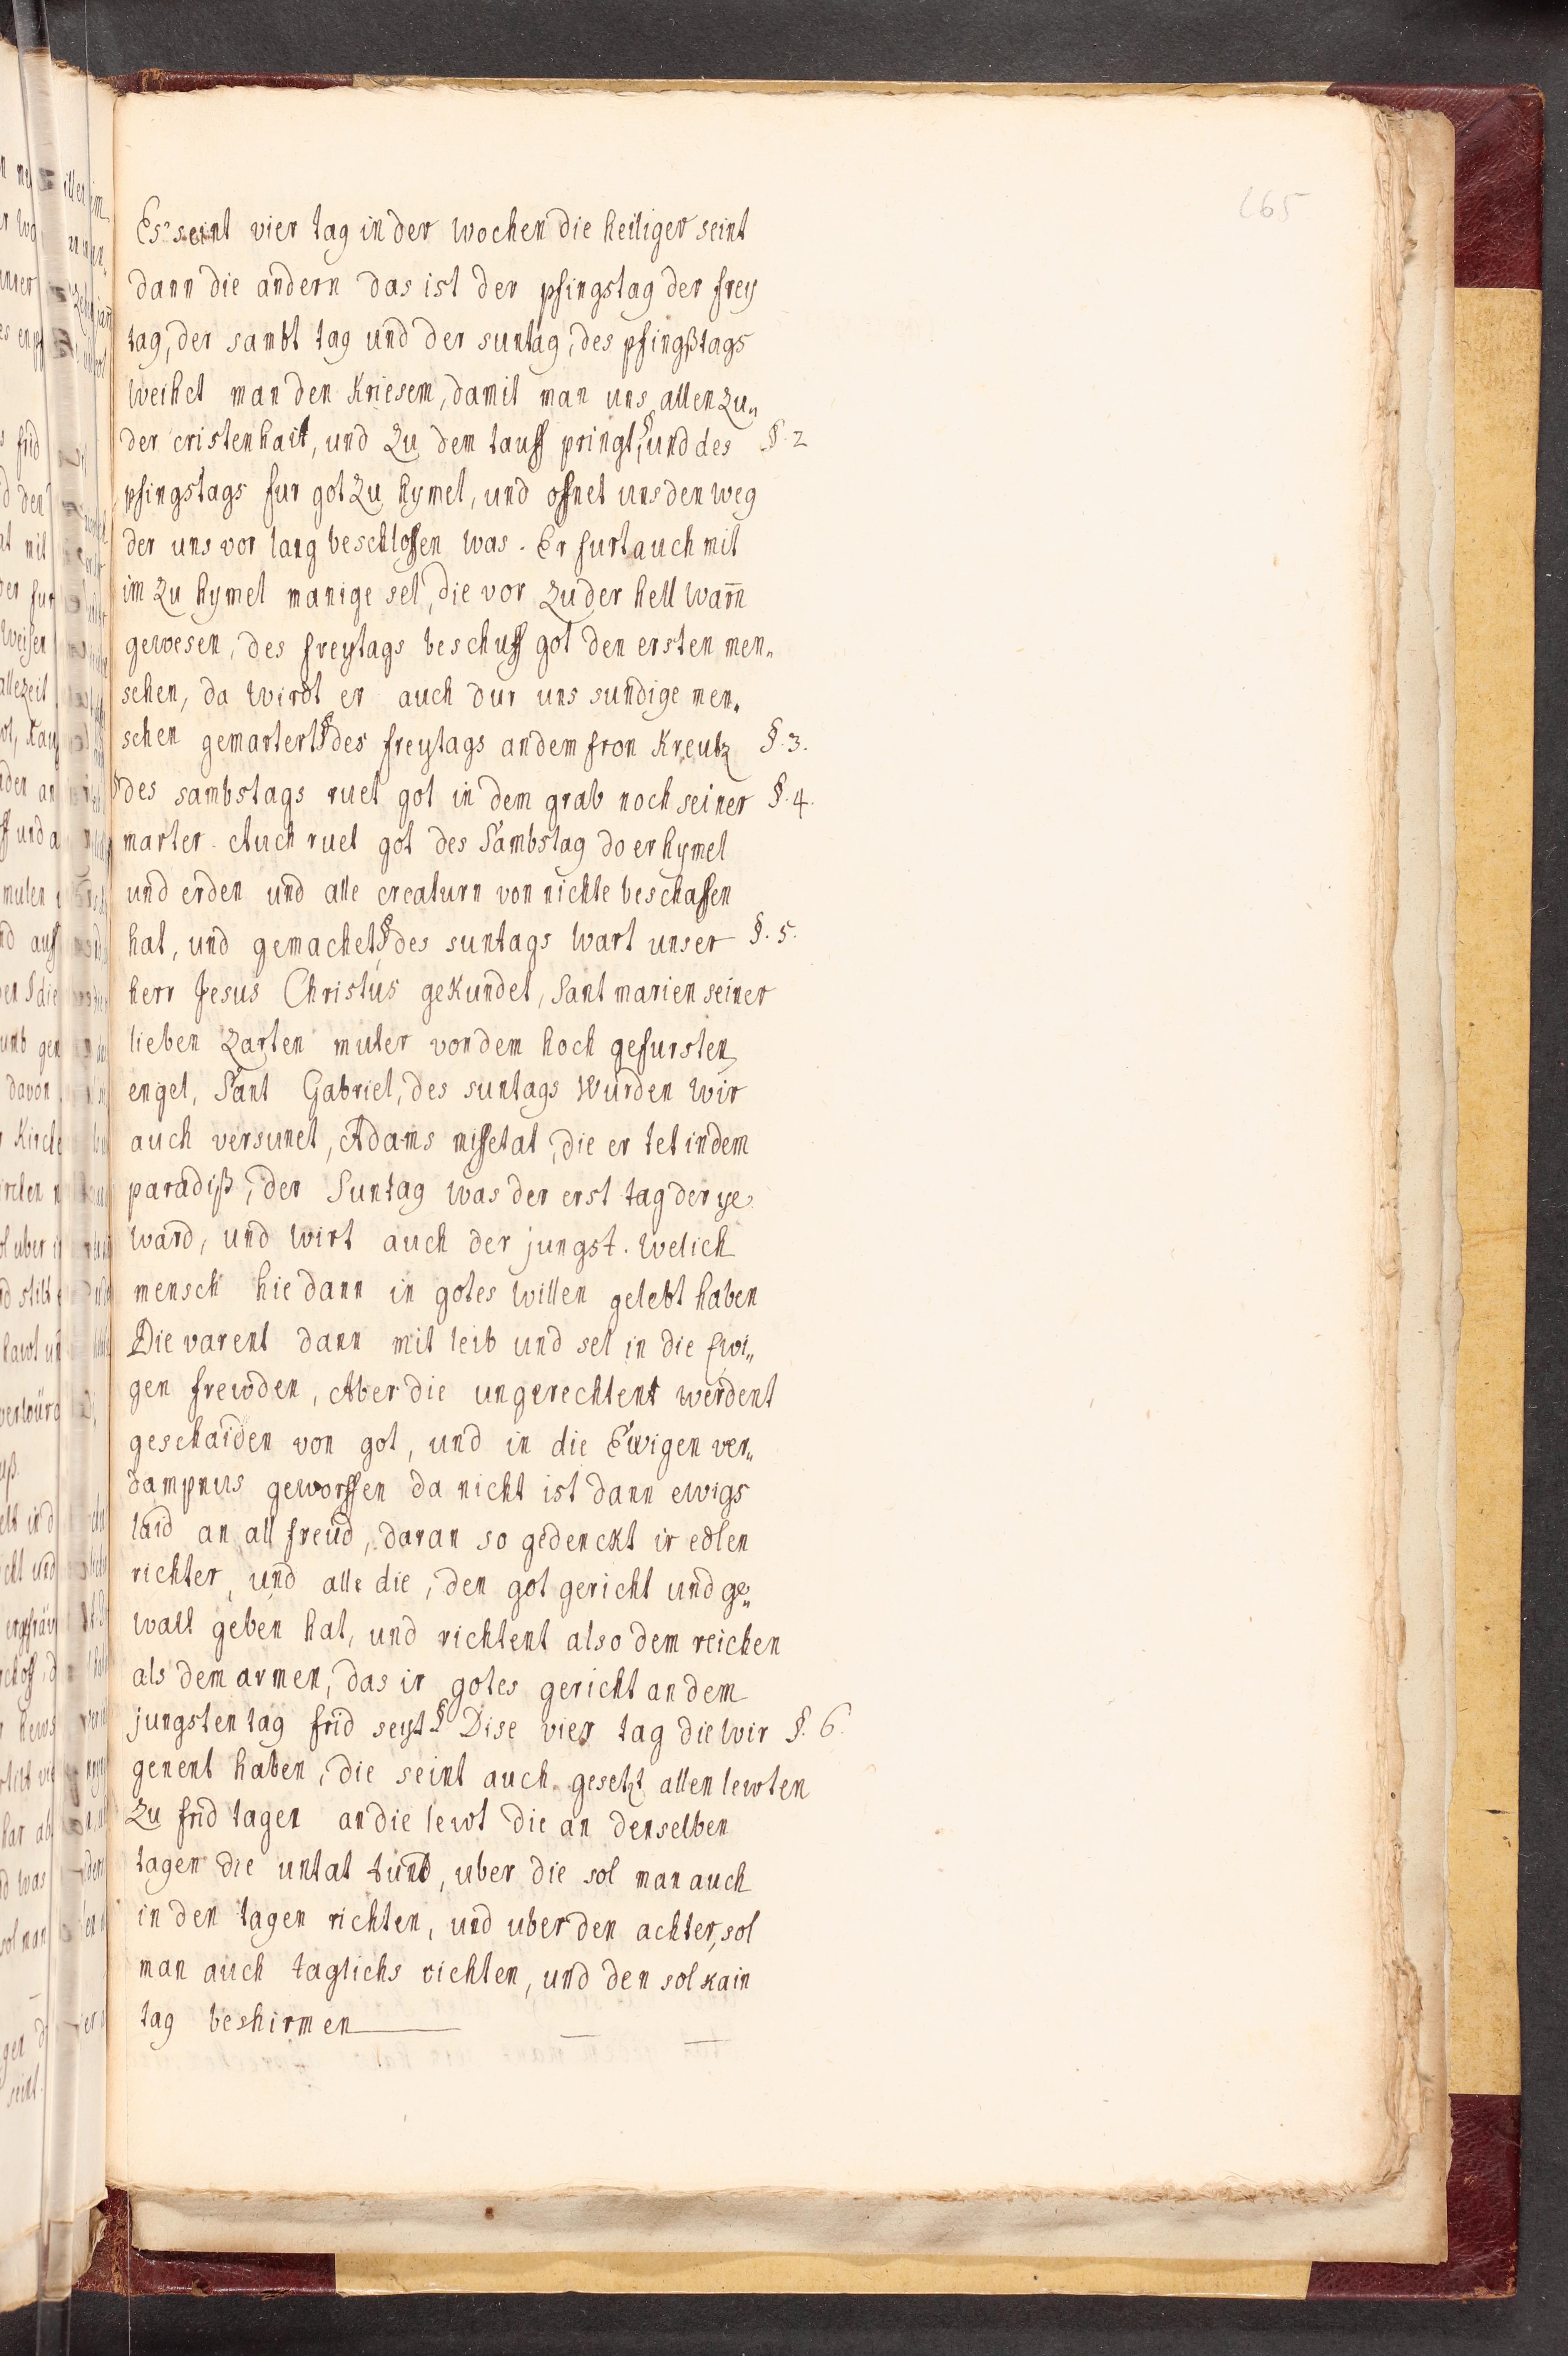 265
Es seint vier tag in der wochen die heiliger seint
dann die andern das ist der pfingstag der frey
tag, der sambt tag und der suntag, des pfingßtags
weihet man den Kriesem, damit man uns allen zu„
der cristenhait, und zu dem tauff pringt, § und des §. 2
pfingstags fur got zu hymel, und offnet uns den weg
der uns vor lang beschlossen was. Er furt auch mit
im zu hymel manige sel, die vor zu der hell warn̄
gewesen, des freytags beschuff got den ersten men„
schen, da wirdt er auch dur uns sundige men„
schen gemartert § des freytags an dem fron Kreutz §. 3.
§ des sambstags ruet got in dem grab noch seiner §. 4.
marter. Auch ruet got des Sambstag do er hymel
und erden und alle creaturn von nichte beschaffen
hat, und gemachet, § des suntags wart unser §. 5.
herr Jesus Christus gekundet, Sant marien seiner
lieben zarten muter von dem hoch gefursten
engel, Sant Gabriel, des suntags wurden wir
auch versunet, Adams missetat, die er tet in dem
paradiß, der Suntag was der erst tag der ye
ward, und wirt auch der jungst. welich
mensch hie dann in gotes willen gelebt haben
Die varent dann mit leib und sel in die Ewi„
gen frewden, Aber die ungerechtent werdent
geschaiden von got, und in die Ewigen ver„
dampnus geworffen da nicht ist dann ewigs
laid an all freud, daran so gedenckt ir edlen
richter, und alle die, den got gericht und ge„
walt geben hat, und richtent also dem reichen
als dem armen, das ir gotes gericht an dem
jungsten tag frid seyt § Dise vier tag die wir §. 6.
genent haben, die seint auch gesetzt allen lewten
zu frid tagen an die lewt die an denselben
tagen die untat tund, uber die sol man auch
in den tagen richten, und uber den achter, sol
man auch taglichs richten, und den sol kain
tag beshirmen